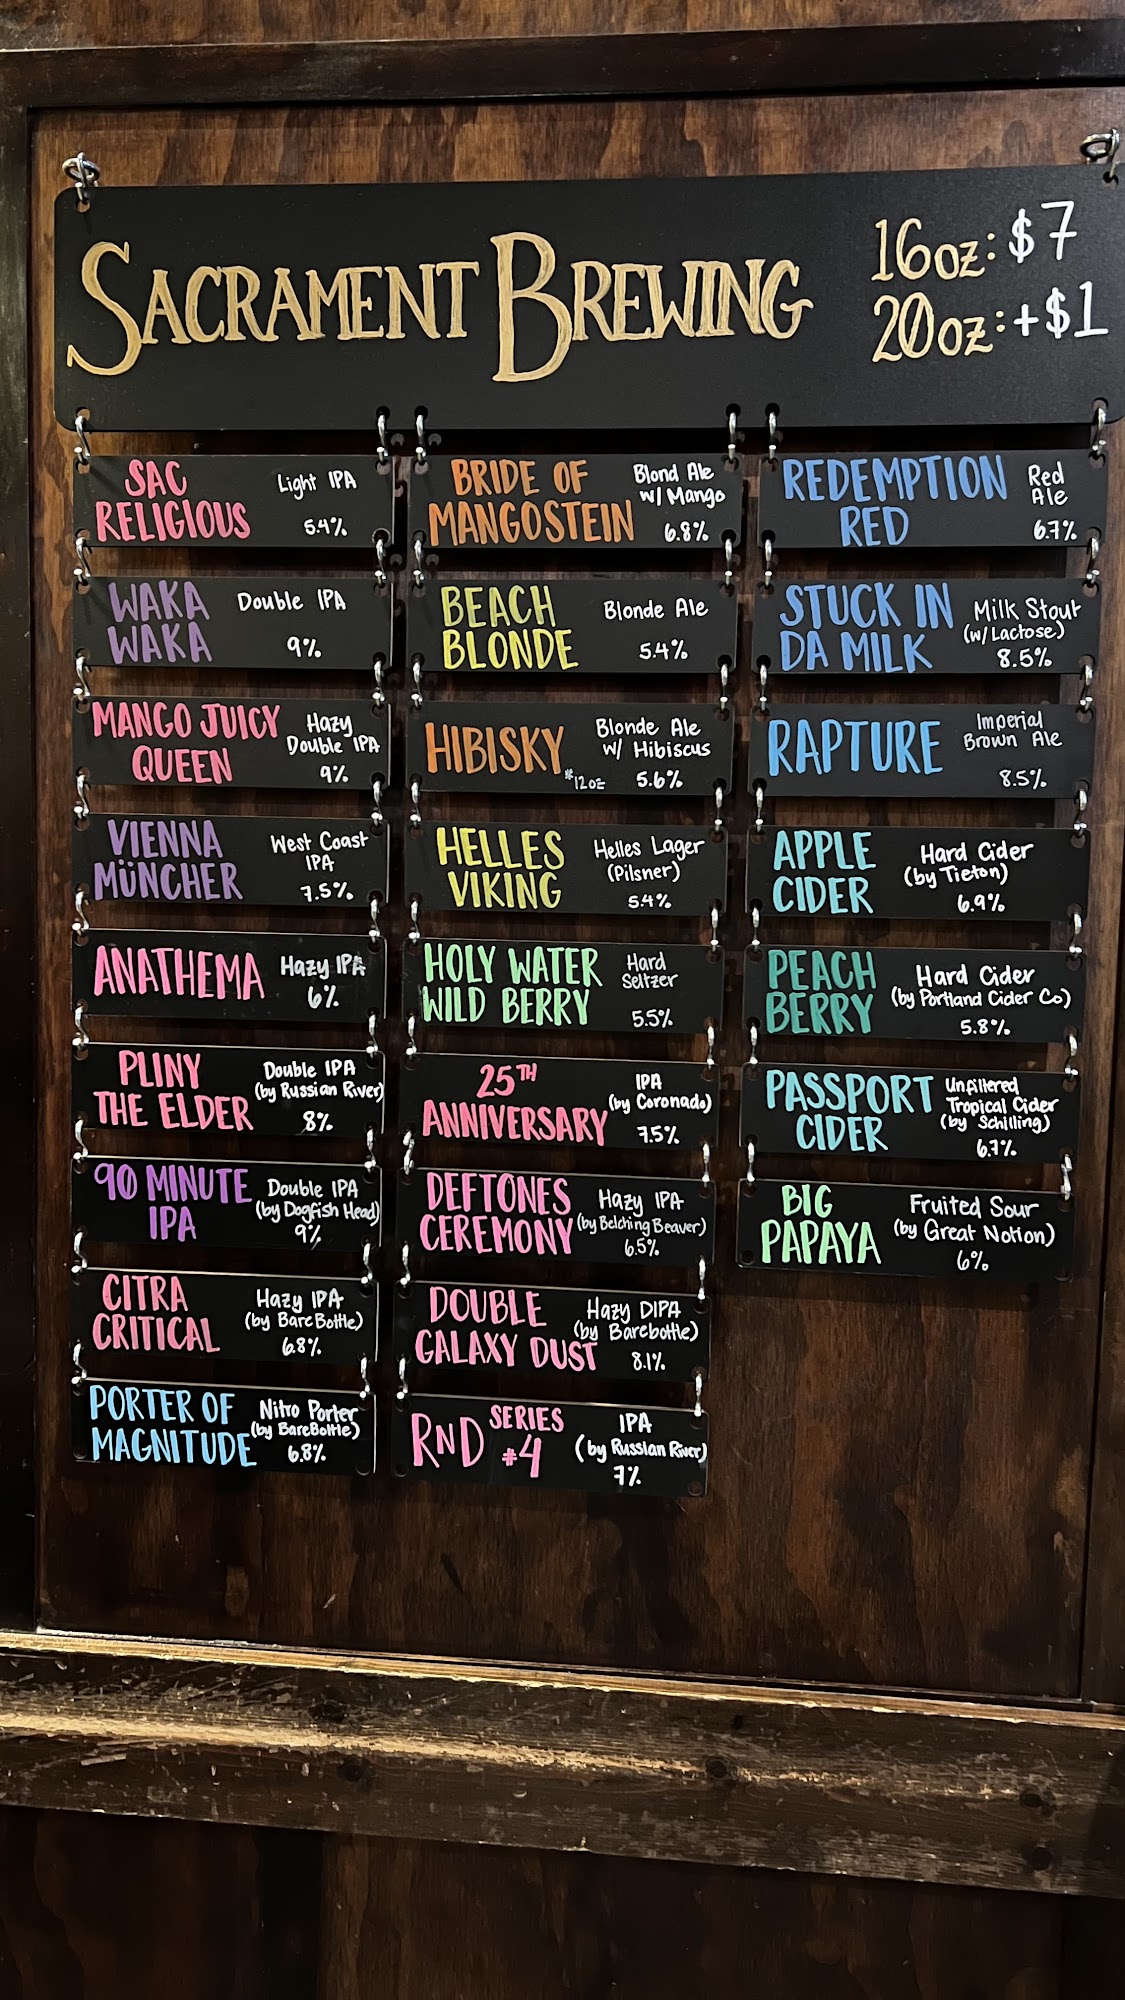 SACRAMENT BREWING
16oz: $7
20oz: +$1
SAC
RELIGIOUS
Light IPA
5.4%
WAKA
WAKA
Double IPA
9%
MANGO JUICY
QUEEN
Hazy
Double IPA
9%
VIENNA
MÜNCHER
West Coast
IPA
7.5%
ANATHEMA
Hazy IPA
6%
PLINY
THE ELDER
Double IPA
(by Russian River)
8%
90 MINUTE
IPA
Double IPA
(by Dogfish Head)
9%
CITRA
CRITICAL
Hazy IPA
(by BareBottle)
6.8%
PORTER OF
MAGNITUDE
Nitro Porter
(by BareBottle)
6.8%
BRIDE OF
MANGOSTEIN
Blond Ale
w/ Mango
6.8%
BEACH
BLONDE
Blonde Ale
5.4%
HIBISKY
*12oz
Blonde Ale
w/ Hibiscus
5.6%
HELLES
VIKING
Helles Lager
(Pilsner)
5.4%
HOLY WATER
WILD BERRY
Hard
Seltzer
5.5%
25TH
ANNIVERSARY
IPA
(by Coronado)
7.5%
DEFTONES
CEREMONY
Hazy IPA
(by Belching Beaver)
6.5%
DOUBLE
GALAXY DUST
Hazy DIPA
(by Barebottle)
8.1%
RnD SERIES
#4
IPA
(by Russian River)
7%
REDEMPTION
RED
Red
Ale
6.7%
STUCK IN
DA MILK
Milk Stout
(w/ Lactose)
8.5%
RAPTURE
Imperial
Brown Ale
8.5%
APPLE
CIDER
Hard Cider
(by Tieton)
6.9%
PEACH
BERRY
Hard Cider
(by Portland Cider Co)
5.8%
PASSPORT
CIDER
Unfiltered
Tropical Cider
(by Schilling)
6.7%
BIG
PAPAYA
Fruited Sour
(by Great Notion)
6%